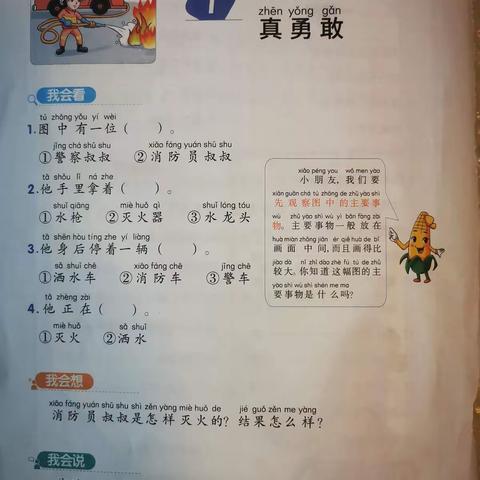 1
zhēn yǒng gǎn
真勇敢
我会看
tú zhōng yǒu yí wèi
1.图中有一位(    )。
jǐng chá shū shu    xiāo fáng yuán shū shu
①警察叔叔    ②消防员叔叔
tā shǒu lǐ ná zhe
2.他手里拿着(    )。
shuǐ qiāng    miè huǒ qì    shuǐ lóng tóu
①水枪    ②灭火器    ③水龙头
tā shēn hòu tíng zhe yí liàng
3.他身后停着一辆(    )。
sǎ shuǐ chē    xiāo fáng chē    jǐng chē
①洒水车    ②消防车    ③警车
tā zhèng zài
4.他正在(    )。
miè huǒ    sǎ shuǐ
①灭火    ②洒水
xiǎo péng you    wǒ men yào
小朋友,我们要
xiān guān chá tú zhōng de zhǔ yào shì
先观察图中的主要事
wù    zhǔ yào shì wù yì bān fàng zài
物。主要事物一般放在
huà miàn zhōng jiān    ér qiě huà de bǐ
画面中间,而且画得比
jiào dà    nǐ zhī dào zhè fú tú de zhǔ
较大。你知道这幅图的主
yào shì wù shì shén me ma
要事物是什么吗?
我会想
xiāo fáng yuán shū shu shì zěn yàng miè huǒ de    jié guǒ zěn me yàng
消防员叔叔是怎样灭火的?结果怎么样?
我会说